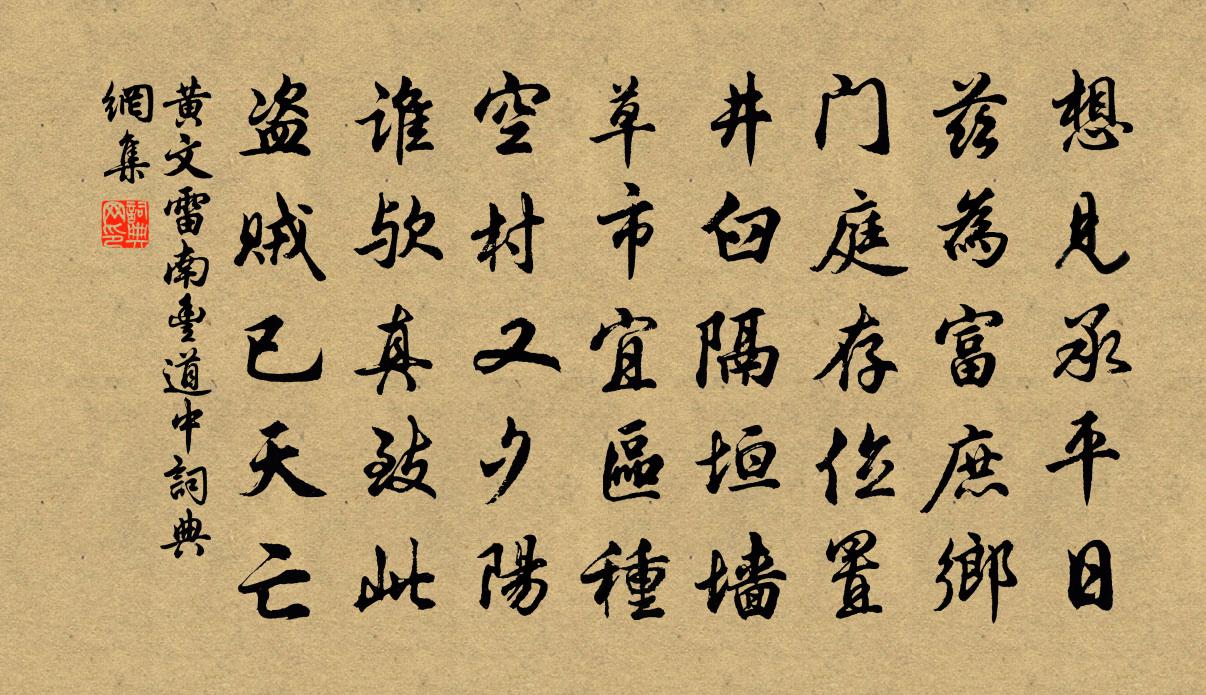 想見承平日
茲為富庶鄉
门庭存位置
井臼隔垣墙
草市宜區種
空村又夕陽
谁欤真致此
盗贼已天亡
黃文雷南豐道中詞典
網集
詞典网印